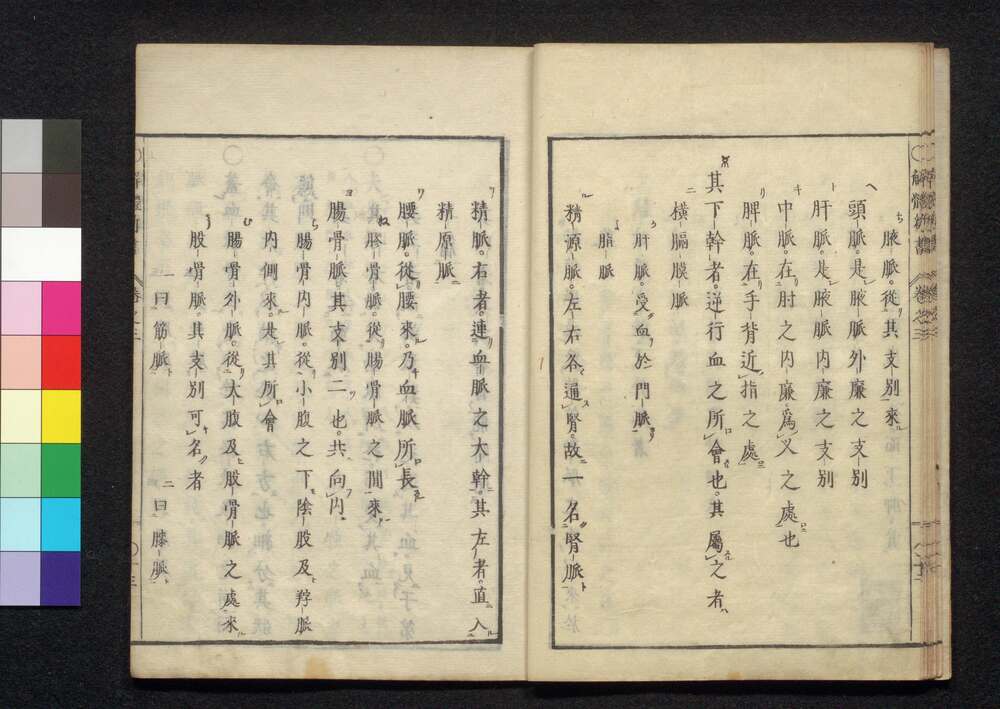 ち 腋脈。從其支別來
へ 頭脈。是腋脈外廉之支別
ト 肝脈。是腋脈内廉之支別
チ 中脈。在肘之内廉爲叉之處也
リ 脾脈。在手背近指之處
其下幹者逆行血之所會也。其屬之者
ニ 横膈膜脈
り 肝脈。受血於門脈
脂脈
ル 精源脈。左右各通腎。故一名腎脈
解體新書 卷之三
精脈。右者連血脈之大幹。其左者。直入
精原脈
ワ 腰脈。從腰來。乃血脈所長
ね 膵骨脈。從腸骨脈之間來
ヨ 腸骨脈其支別二也。共向内
ら 腸骨内脈。從小腹之下陰股及羘脈
内側來。是其所會
む 腸骨外脈。從大腹及股骨脈之處來
う 股骨脈。其支別可名者
一曰筋脈 二曰膝脈